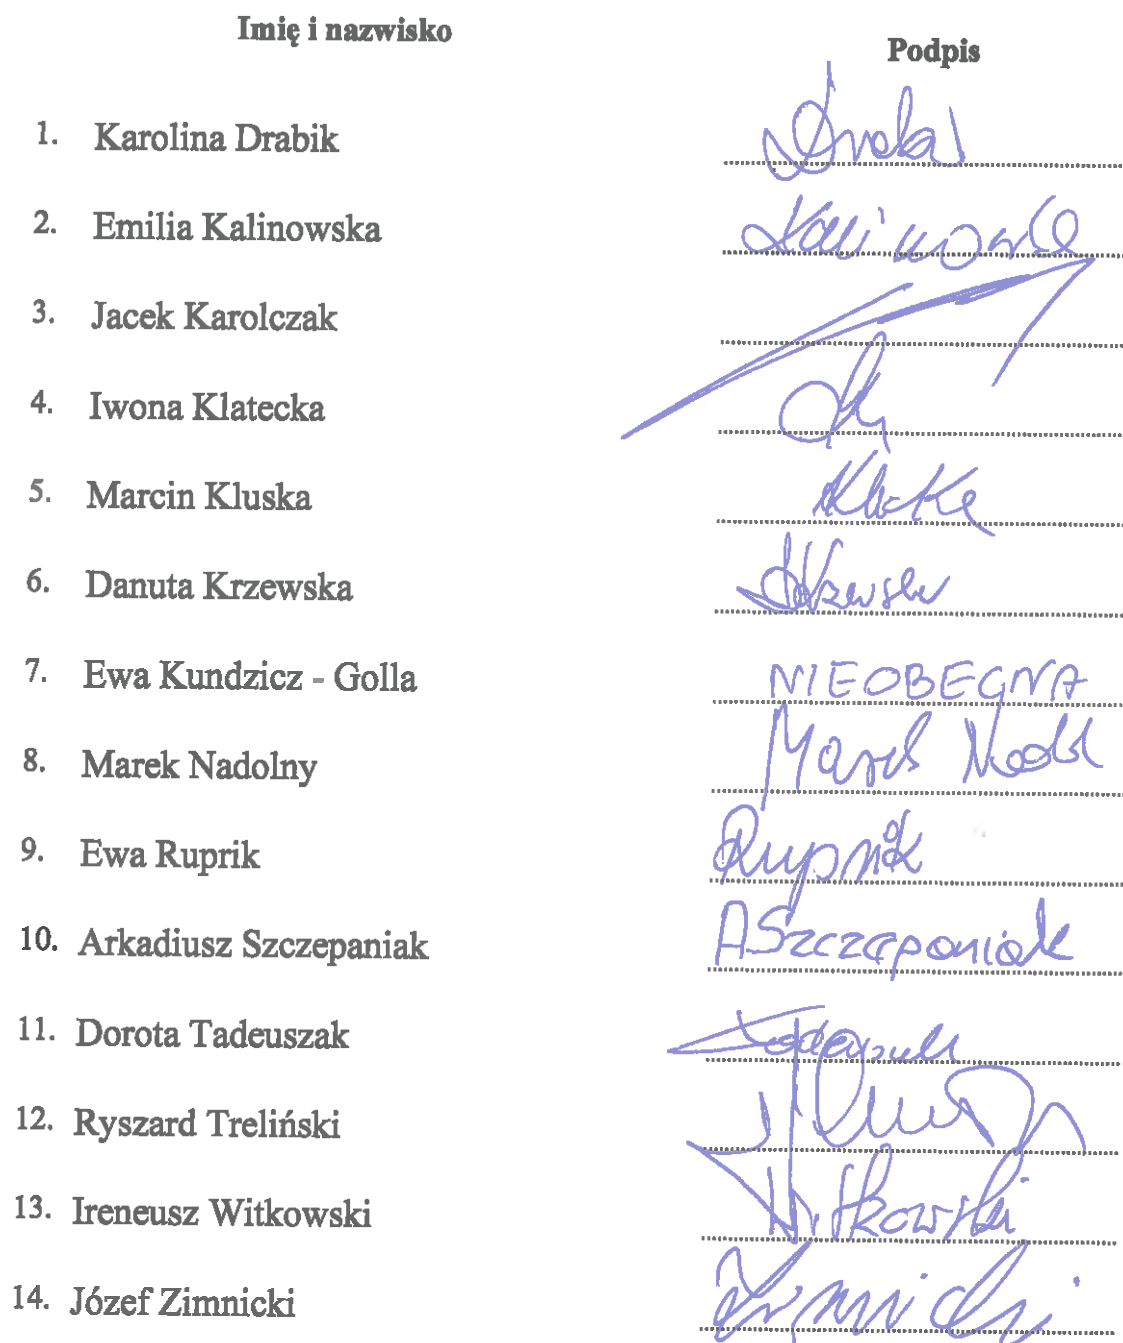 Imię i nazwisko
Podpis
1. Karolina Drabik
2. Emilia Kalinowska
3. Jacek Karolczak
4. Iwona Klatecka
5. Marcin Kluska
6. Danuta Krzewska
7. Ewa Kundzicz - Golla NIEOBECNA
8. Marek Nadolny Marek
9. Ewa Ruprik
10. Arkadiusz Szczepaniak ASzczepaniak
11. Dorota Tadeuszak
12. Ryszard Treliński
13. Ireneusz Witkowski Witkowski
14. Józef Zimnicki Zimnicki